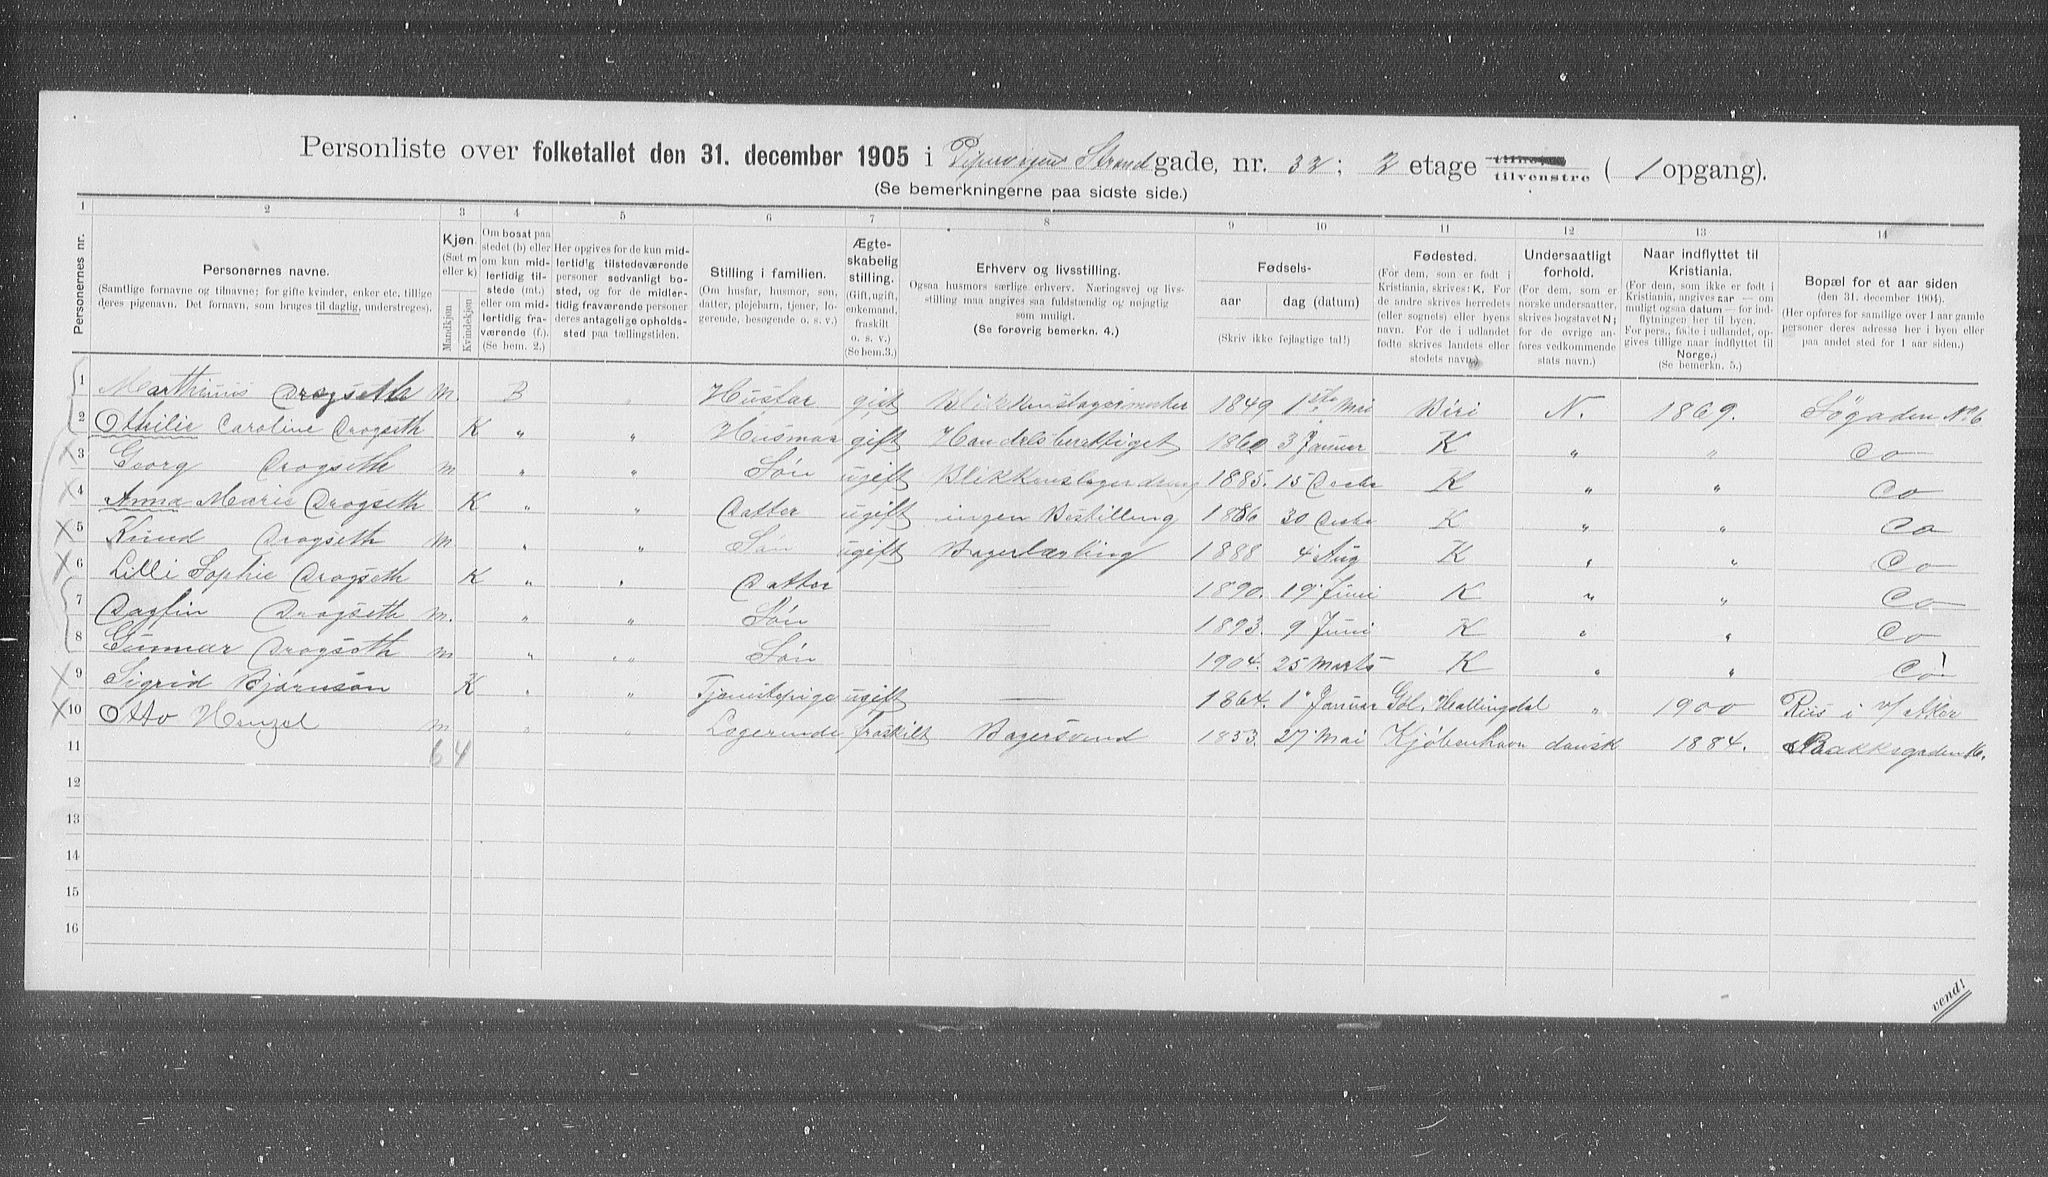 Personliste over folketallet den 31. december 1905 i Pipervigens Strand gade, nr. 32; 2 etage tilvenstre ( 1 opgang).
(Se bemerkningerne paa sidste side.)
1 2 3 4 5 6 7 8 9 10 11 12 13 14
Personernes nr.
Personernes navne.
(Samtlige fornavne og tilnavne; for gifte kvinder, enker etc. tillige deres pigenavn. Det fornavn, som bruges til daglig, understreges).
Kjøn.
(Sæt m eller k)
Mandkjøn
Kvindekjøn
Om bosat paa stedet (b) eller om kun midlertidig tilstede (mt.) eller om midlertidig fraværende (f.). (Se bem. 2.)
Her opgives for de kun midlertidig tilstedeværende personer sedvanligt bosted, og for de midlertidig fraværende personer deres antagelige opholdssted paa tællingstiden.
Stilling i familien.
(Om husfar, husmor, søn, datter, plejebarn, tjener, logerende, besøgende o. s. v.)
Ægteskabelig stilling.
(Gift, ugift, enkemand, fraskilt o. s. v.) (Se bem. 3.)
Erhverv og livsstilling.
Ogsaa husmors særlige erhverv. Næringsvej og livsstilling maa angives saa fuldstændig og nøjagtig som muligt.
(Se forøvrig bemerkn. 4.)
Fødsels-
aar
dag (datum)
(Skriv ikke fejlagtige tal!)
Fødested.
(For dem, som er født i Kristiania, skrives: K. For de andre skrives herredets (eller sognets) eller byens navn. For de i udlandet fødte skrives landets eller stedets navn.)
Undersaatligt forhold.
(For dem, som er norske undersaatter, skrives bogstavet N; for de øvrige anføres vedkommende stats navn.)
Naar indflyttet til Kristiania.
(For dem, som ikke er født i Kristiania, angives aar — om muligt ogsaa datum — for indflytningen her til byen. For pers., fødte i udlandet, opgives tillige naar indflyttet til Norge.)
(Se bemerkn. 5.)
Bopæl for et aar siden
(den 31. december 1904).
(Her opføres for samtlige over 1 aar gamle personer deres adresse her i byen eller paa andet sted for 1 aar siden.)
1 Marthinus Drogseth m. B " Husfar gift Blikkenslagermester 1849 1ste Mai Biri N. 1869. Søgaden No 6
2 Othilie Caroline Drogseth K " " Husmor gift Handelsberettiget 1860 3 Januar K " " Do
3 Georg Drogseth m " " Søn ugift Blikkenslagerdreng 1885. 15 Decbr K " " Do
4 Anna Marie Drogseth K " " Datter ugift ingen Bestilling 1886 30 Decbr K " " Do
5 Knud Drogseth m " " Søn ugift Bagerlærling 1888 4 Aug K " " Do
6 Lilli Sophie Drogseth K " " Datter 1890. 19 Juni K " " Do
7 Dagfin Drogseth m. " " Søn — 1893. 9 Juni K " " Do
8 Gunnar Drogseth m " " Søn — 1904. 25 Marts K " " Do!
9 Sigrid Bjørnson K " " Tjenistepige ugift — 1864. 1 Januar Gol. Hallingdal " 1900 Riis i V/Aker
10 Otto Henzel m " " Logerende fraskilt Bagersvend 1853. 27 Mai Kjøbenhavn dansk 1884. Bakkegaden 16.
11 6 4
12
13
14
15
16
vend!